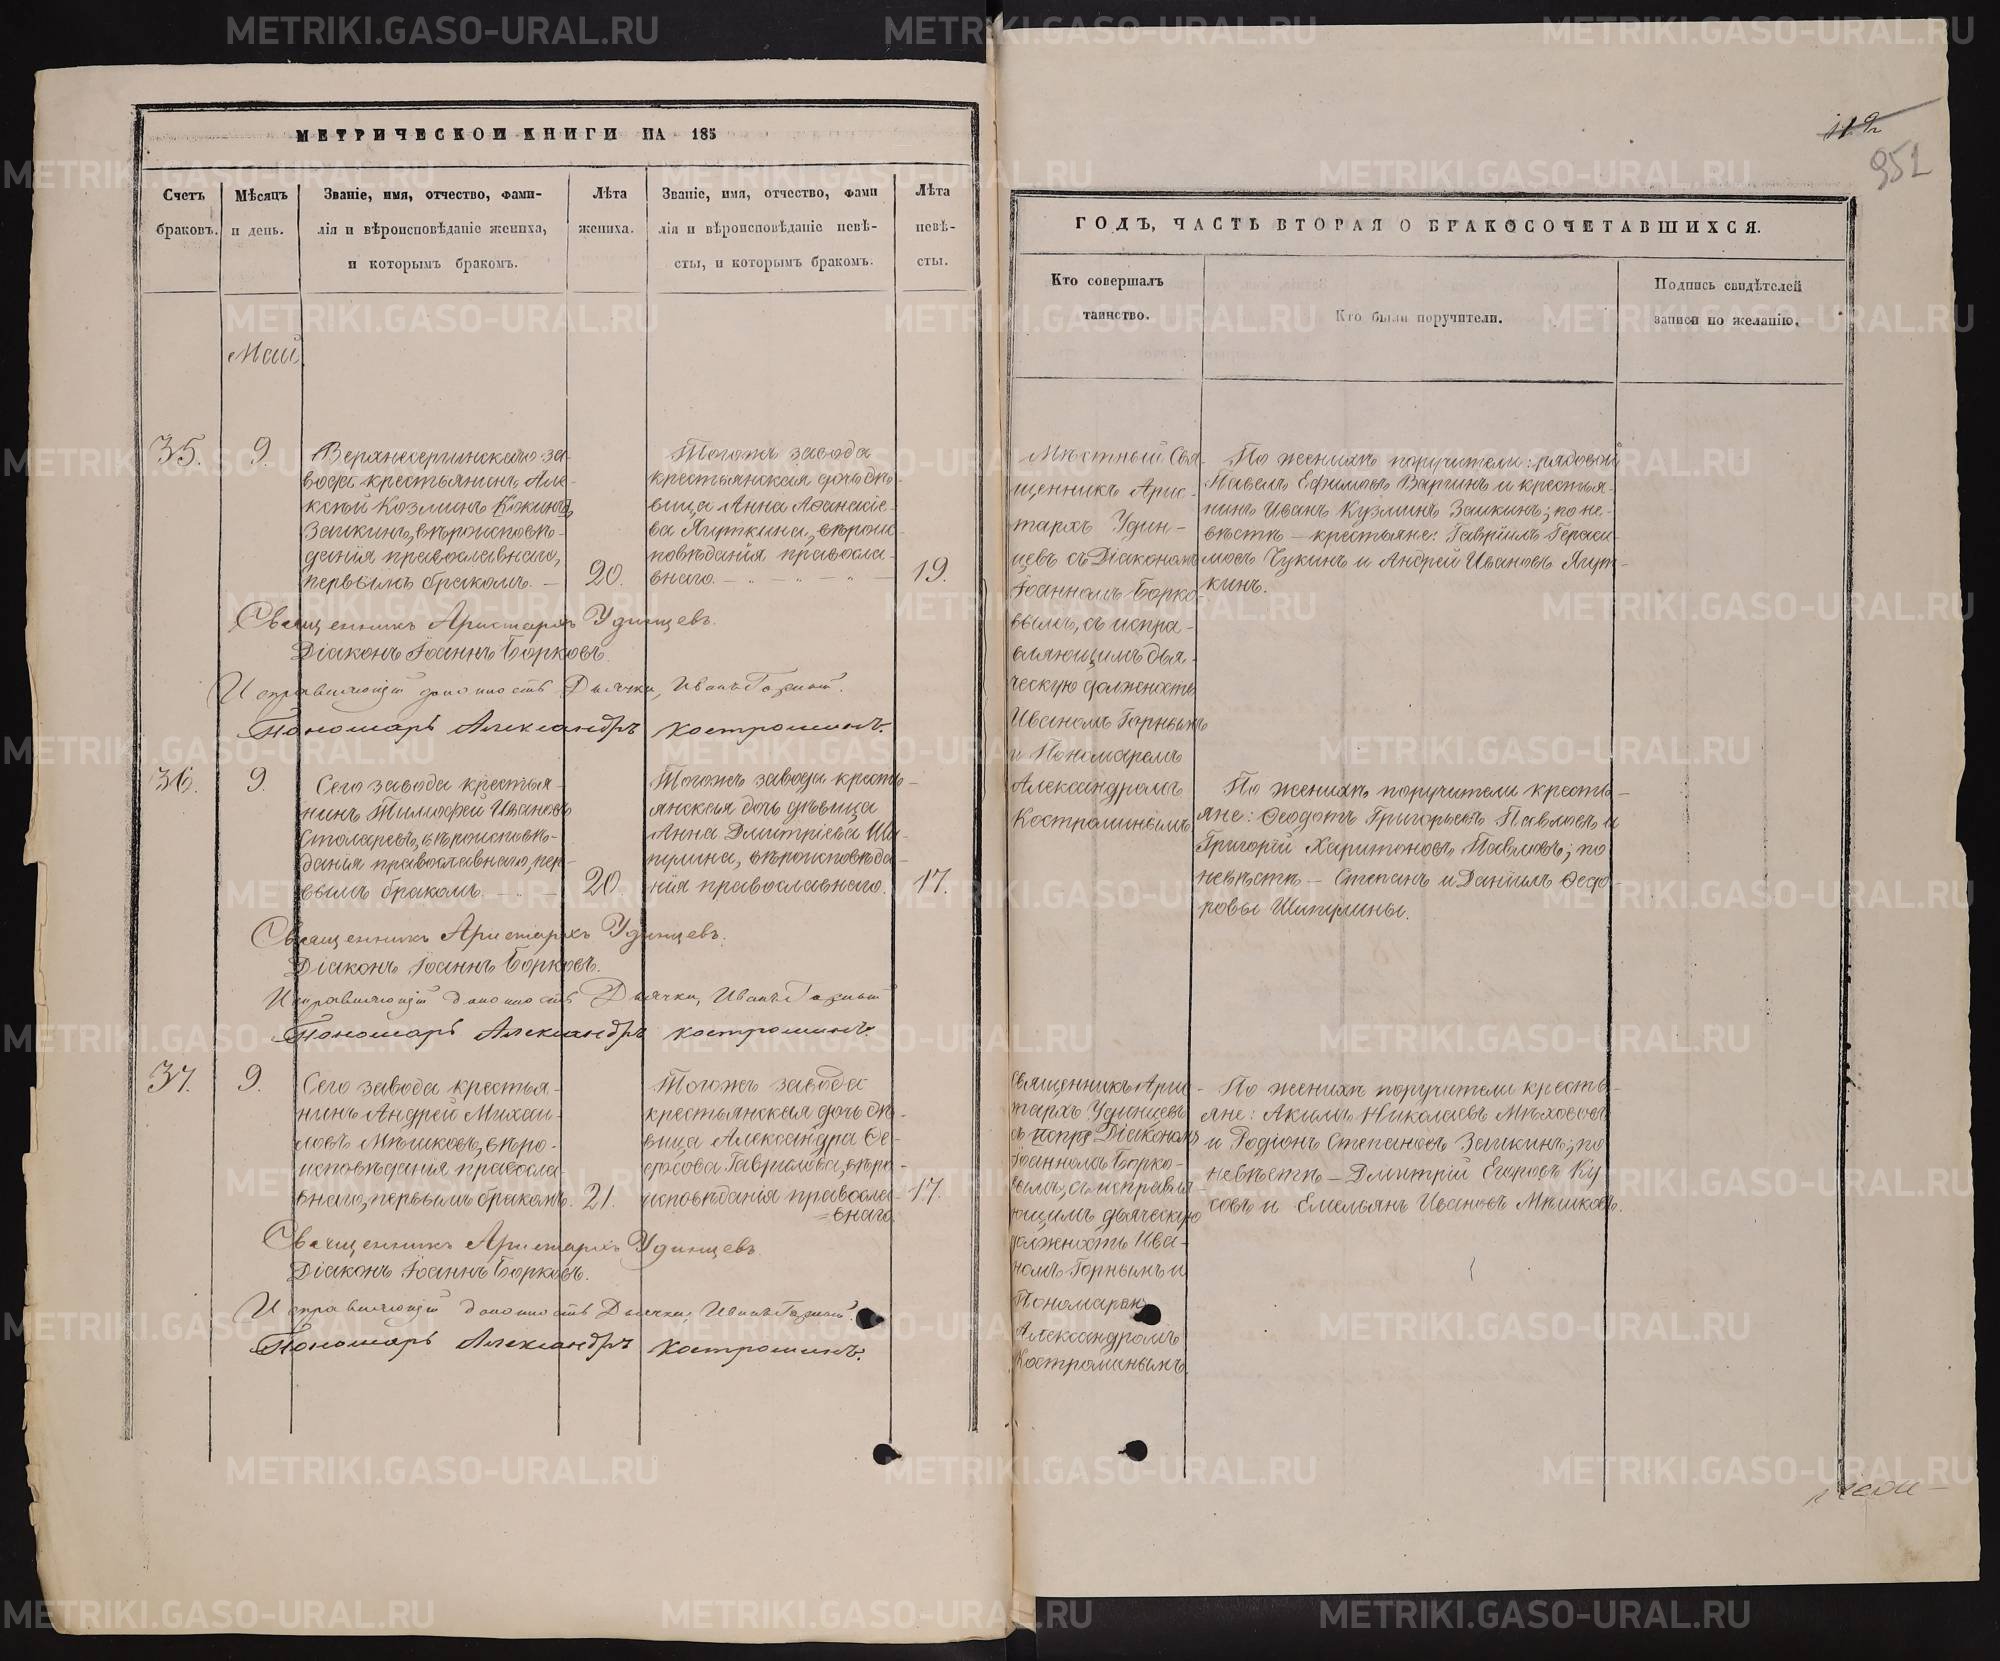 МЕТРИЧЕСКОЙ КНИГИ НА 185
Счетъ браковъ.
Мѣсяцъ и день.
Званіе, имя, отчество, фами-
лія и вѣроисповѣданіе жениха,
и которымъ бракомъ.
Лѣта
жениха.
Званіе, имя, отчество, фами
лія и вѣроисповѣданіе невѣ-
сты, и которымъ бракомъ.
Лѣта
невѣ-
сты.
Май
35.
9.
Верхнесергинскаго за-
вода крестьянинъ Але-
ксѣй Козминъ Кокинъ
Заикинъ, вѣроисповѣ-
данія православнаго,
первымъ бракомъ. —
20.
Тогожъ завода
крестьянская дочь дѣ-
вица Анна Аѳанасіе-
ва Ягуткина, вѣроис
повѣданія правосла-
внаго. —
19.
Священникъ Аристархъ Удинцевъ.
Діаконъ Іоаннъ Борковъ.
Исправляющій должность Дьячка, Иванъ Горный.
Пономарь Александръ Костроминъ.
36.
9.
Сего завода крестья-
нинъ Тимоѳей Ивановъ
Столаревъ, вѣроисповѣ-
данія православнаго, пер-
вымъ бракомъ. —
20
Тогожъ завода кресть-
янская дочь дѣвица
Анна Дмитріева Ши-
пулина, вѣроисповѣда-
нія православнаго.
17.
Священникъ Аристархъ Удинцевъ.
Діаконъ Іоаннъ Борковъ.
Исправляющій должность Дьячка, Иванъ Горный
Пономарь Александръ Костроминъ.
37.
9.
Сего завода крестья-
нинъ Андрей Михаи-
ловъ Мѣшковъ, вѣро-
исповѣданія правосла
внаго, первымъ бракомъ.
21.
Тогожъ завода
крестьянская дочь дѣ-
вица Александра Ѳе-
досова Гаврилова, вѣро-
исповѣданія правосла-
внаго.
17.
Священникъ Аристархъ Удинцевъ
Діаконъ Іоаннъ Борковъ.
Исправляющій должность Дьячка, Иванъ Горный.
Пономарь Александръ Костроминъ.
952
ГОДЪ, ЧАСТЬ ВТОРАЯ О БРАКОСОЧЕТАВШИХСЯ.
Кто совершалъ
таинство.
Кто были поручители.
Подпись свидѣтелей
записи по желанію.
Мѣстный Свя-
щенникъ Арис-
тархъ Удин-
цевъ съ Діакономъ
Іоанномъ Борко-
вымъ, съ испра-
вляющимъ дья-
ческую должность
Иваномъ Горнымъ
и Пономаремъ
Александромъ
Костроминымъ
По женихѣ поручители: рядовой
Павелъ Ефимовъ Варгинъ и крестья-
нинъ Иванъ Кузминъ Заикинъ; по не-
вѣстѣ — крестьяне: Гаврiилъ Гераси-
мовъ Чукинъ и Андрей Ивановъ Ягут-
кинъ.
По женихѣ поручители кресть-
яне: Ѳеодотъ Григорьевъ Павловъ и
Григорій Харитоновъ Павловъ; по
невѣстѣ — Степанъ и Даніилъ Ѳедо-
ровы Шипулины.
Священникъ Арис-
тархъ Удинцевъ
съ испр Діакономъ
Іоанномъ Борко-
вымъ, съ исправля-
ющимъ дьяческую
должность Ива-
номъ Горнымъ и
Пономарем
Александромъ
Костроминымъ
По женихѣ поручители кресть-
яне: Акимъ Николаевъ Мѣхововъ
и Родіонъ Степановъ Заикинъ; по
невѣстѣ — Дмитрій Егоровъ Ку
совъ и Емельянъ Ивановъ Мѣшковъ.
METRIKI.GASO-URAL.RU